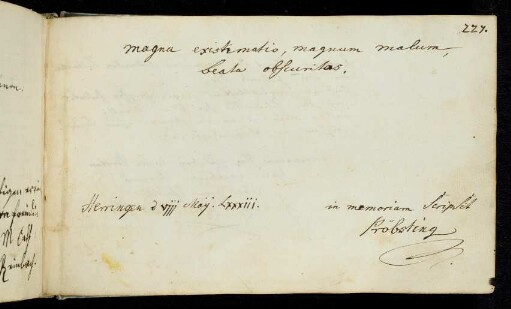 227.
magna existimatio, magnum malum,
beata obscuritas.
Herringen d viij May. Lxxxiii.
in memoriam Scripsit
Pröbsting